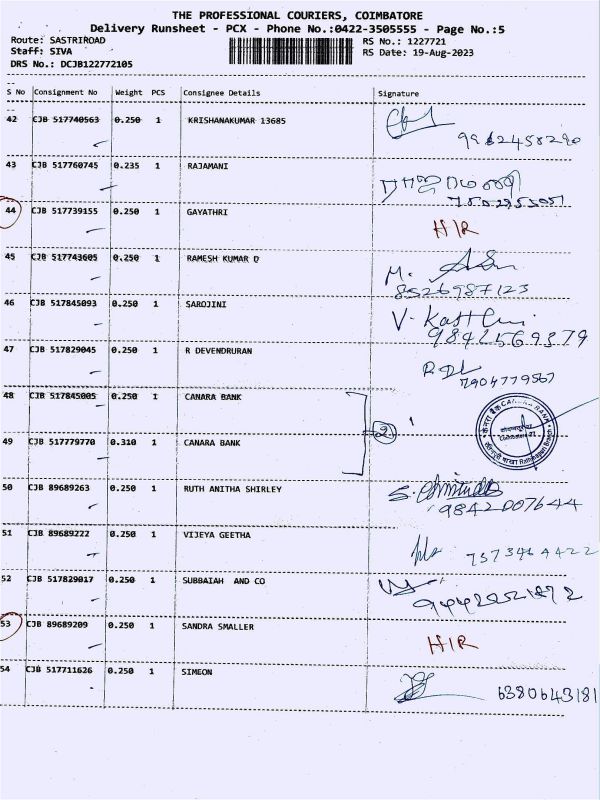 THE PROFESSIONAL COURIERS, COIMBATORE
Delivery Runsheet - PCX - Phone No.:0422-3505555 - Page No.:5
Route: SASTRIROAD
Staff: SIVA
DRS No.: DCJB122772105
RS No.: 1227721
RS Date: 19-Aug-2023
S No Consignment No Weight PCS Consignee Details Signature
42 CJB 517740563 0.250 1 KRISHANAKUMAR 13685
43 CJB 517760745 0.235 1 RAJAMANI
44 CJB 517739155 0.250 1 GAYATHRI H/R
45 CJB 517743605 0.250 1 RAMESH KUMAR D M.
8526987123
46 CJB 517845093 0.250 1 SAROJINI V.
9842569379
47 CJB 517829045 0.250 1 R DEVENDRURAN
7904779567
48 CJB 517845005 0.250 1 CANARA BANK
2
49 CJB 517779770 0.310 1 CANARA BANK
CANARA BANK
50 CJB 89689263 0.250 1 RUTH ANITHA SHIRLEY S.
9842007644
51 CJB 89689222 0.250 1 VIJEYA GEETHA
7373464422
52 CJB 517829017 0.250 1 SUBBAIAH AND CO
53 CJB 89689209 0.250 1 SANDRA SMALLER H/R
54 CJB 517711626 0.250 1 SIMEON 6380643181